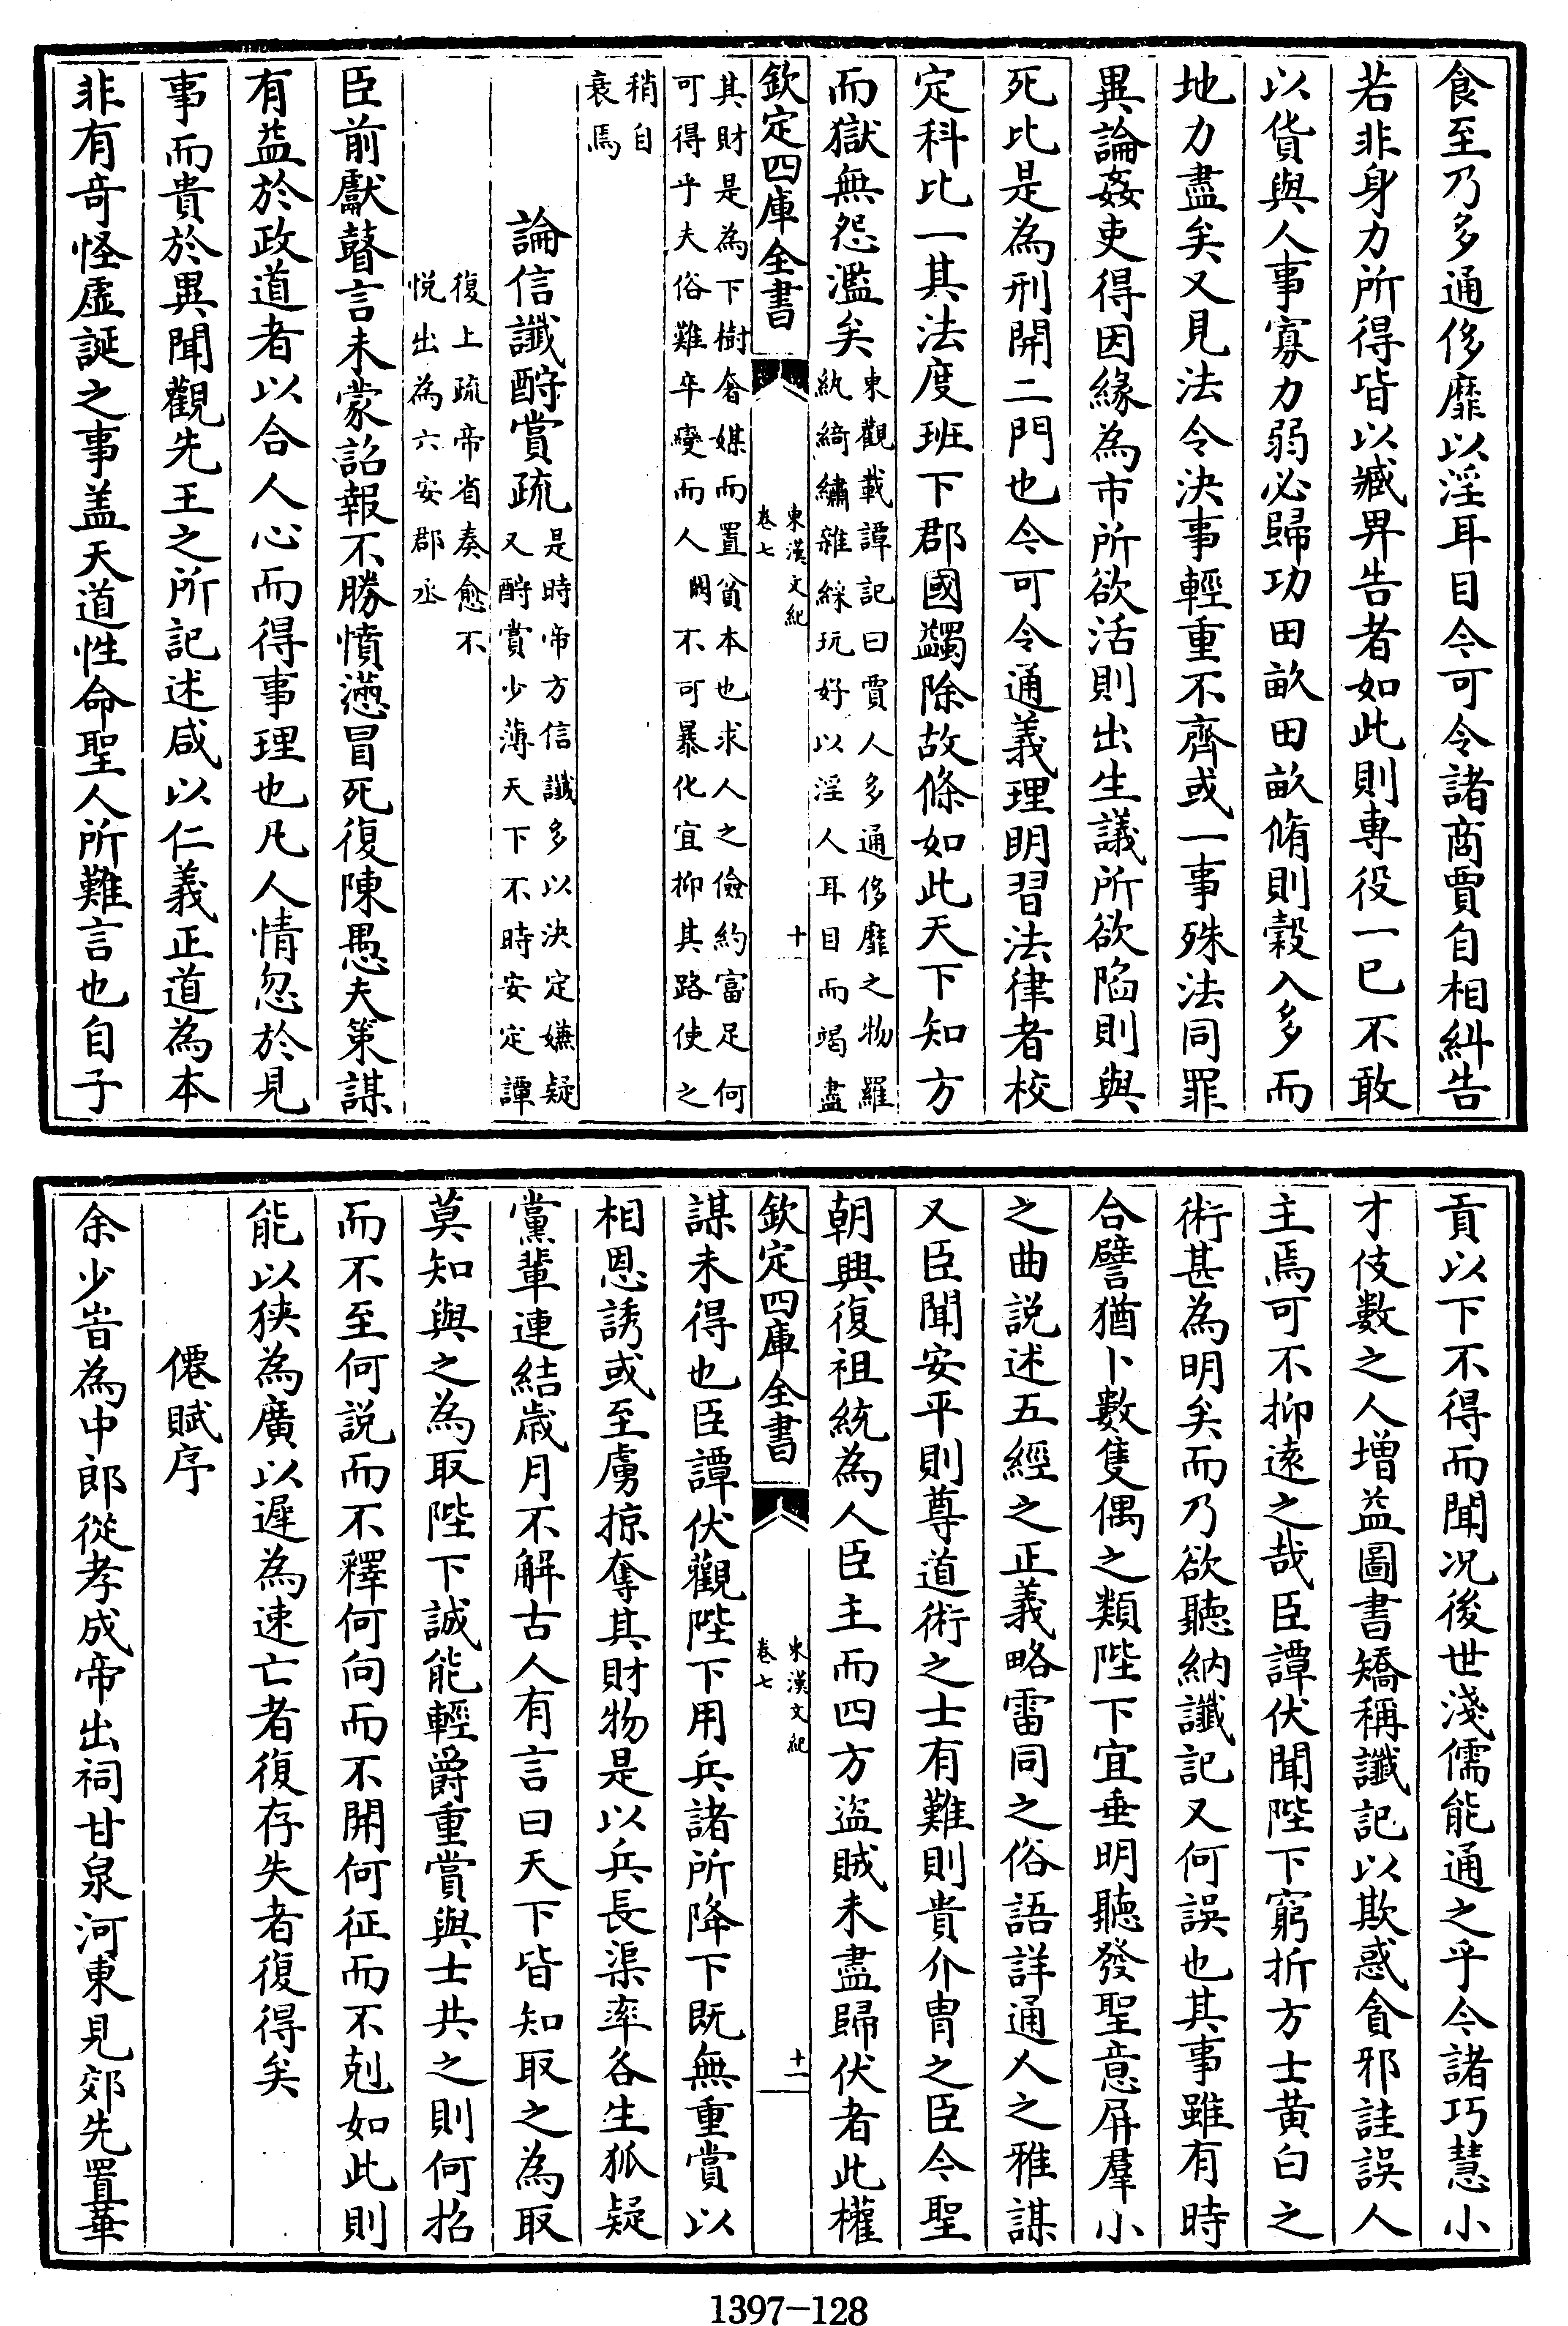 食至乃多通侈靡以淫耳目今可令諸商賈自相糾告
若非身力所得皆以臧畀告者如此則專役一己不敢
以貨與人事寡力弱必歸功田畝田畝脩則穀入多而
地力盡矣又見法令決事輕重不齊或一事殊法同罪
異論姦吏得因緣為市所欲活則出生議所欲陷則與
死比是為刑開二門也今可令通義理明習法律者校
定科比一其法度班下郡國蠲除故條如此天下知方
而獄無怨濫矣
東觀載譚記曰賈人多通侈靡之物羅
紈綺繡雜綵玩好以淫人耳目而竭盡
欽定四庫全書
東漢文紀
卷七
十
其財是為下樹奢媒而置貧本也求人之儉約富足何
可得乎夫俗難卒變而人闕不可暴化宜抑其路使之
稍自
衰焉
論信讖酧賞疏
是時帝方信讖多以決定嫌疑
又酧賞少薄天下不時安定譚
復上疏帝省奏愈不
悅出為六安郡丞
臣前獻瞽言未蒙詔報不勝憤懣冒死復陳愚夫策謀
有益於政道者以合人心而得事理也凡人情忽於見
事而貴於異聞觀先王之所記述咸以仁義正道為本
非有奇怪虛誕之事盖天道性命聖人所難言也自子
貢以下不得而聞况後世淺儒能通之乎今諸巧慧小
才伎數之人增益圖書矯稱讖記以欺惑貪邪詿誤人
主焉可不抑遠之哉臣譚伏聞陛下窮折方士黄白之
術甚為明矣而乃欲聽納讖記又何誤也其事雖有時
合譬猶卜數隻偶之類陛下宜垂明聽發聖意屏羣小
之曲説述五經之正義略雷同之俗語詳通人之雅謀
又臣聞安平則尊道術之士有難則貴介胄之臣今聖
朝興復祖統為人臣主而四方盜賊未盡歸伏者此權
欽定四庫全書
東漢文紀
卷七
十一
謀未得也臣譚伏觀陛下用兵諸所降下既無重賞以
相恩誘或至虜掠奪其財物是以兵長渠率各生狐疑
黨輩連結歲月不解古人有言曰天下皆知取之為取
莫知與之為取陛下誠能輕爵重賞與士共之則何招
而不至何説而不釋何向而不開何征而不剋如此則
能以狹為廣以遲為速亡者復存失者復得矣
僊賦序
余少旹為中郎從孝成帝出祠甘泉河東見郊先置華
1397-128